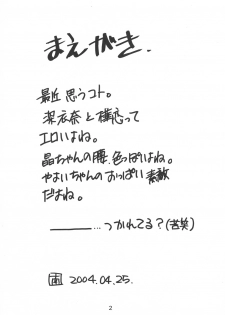 まえがき.
最近思うコト。
梨衣奈と横恋って
エロいよね。
晶ちゃんの腰、色っぽいよね。
やよいちゃんのおっぱい素敵
だよね。
……つかれてる？(苦笑)
2004.04.25.
2